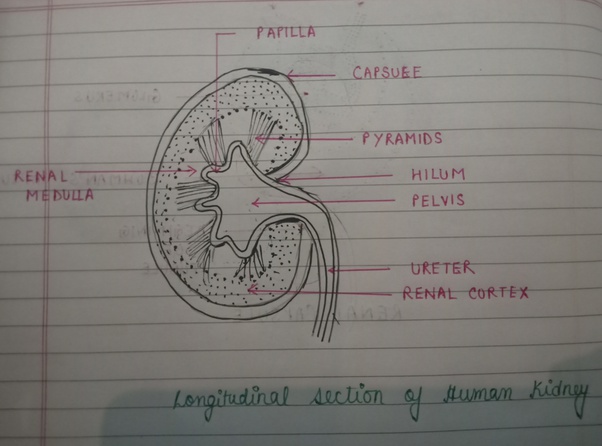 PAPILLA
CAPSULE
PYRAMIDS
RENAL
MEDULLA
HILUM
PELVIS
URETER
RENAL CORTEX
Longitudinal section of Human Kidney